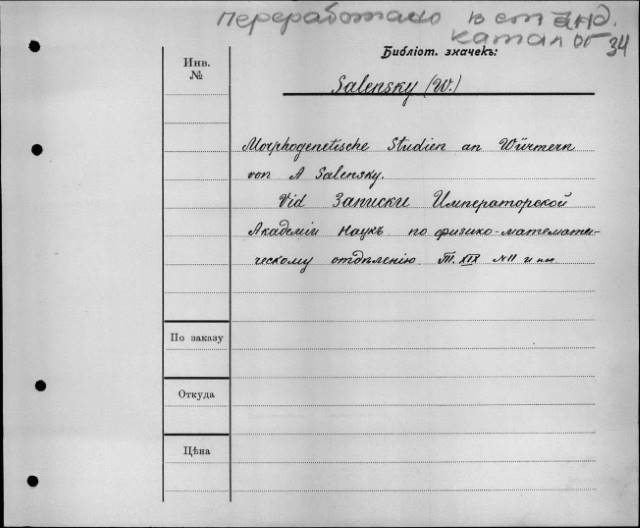 переработано в станд.
каталог 34
Библіот. значекъ:
Инв.
№
Salensky (W.)
Morphogenetische Studien an Würmern
von A Salensky.
Vid Записки Императорской
Академіи Наукъ по физико-математи-
ческому отдѣленію Т. XIX №11 и
По заказу
Откуда
Цѣна